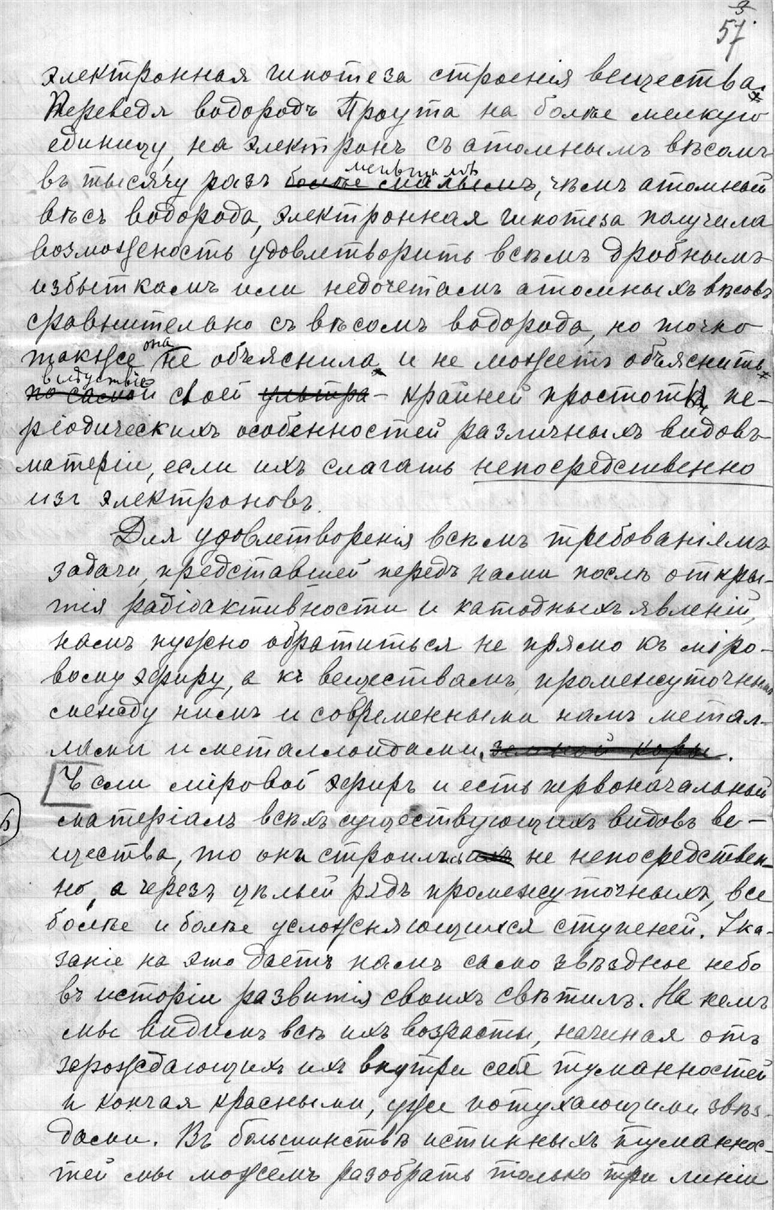 3
57
электронная гипотеза строенія вещества.
Переведя водородъ Проута на болѣе мелкую
единицу, на электронъ съ атомнымъ вѣсомъ
въ тысячу разъ болѣе малымъ, чѣмъ атомный
меньшимъ
вѣсъ водорода, электронная гипотеза получила
возможность удовлетворить всѣмъ дробнымъ
избыткамъ или недочетамъ атомныхъ вѣсовъ
сравнительно съ вѣсомъ водорода, но точно
также она не объяснила и не можетъ объяснить
вслѣдствіе
по самой своей ультра-крайней простоты пе-
ріодическихъ особенностей различныхъ видовъ
матеріи, если ихъ слагать непосредственно
изъ электроновъ.
Для удовлетворенія всѣмъ требованіямъ
задачи, представшей передъ нами послѣ откры-
тія радіоактивности и катодныхъ явленій,
намъ нужно обратиться не прямо къ міро-
вому эфиру, а къ веществамъ, промежуточнымъ
между нимъ и современными намъ метал-
лами и металлоидами, земной коры.
Если міровой эфиръ и есть первоначальный
матеріалъ всѣхъ существующихъ видовъ ве-
щества, то онъ строилъ ихъ не непосредствен-
но, а черезъ цѣлый рядъ промежуточныхъ, все
болѣе и болѣе усложняющихся ступеней. Ука-
заніе на это даетъ намъ само звѣздное небо
въ исторіи развитія своихъ свѣтилъ. На немъ
мы видимъ всѣ ихъ возрасты, начиная отъ
зарождающихъ ихъ внутри себя туманностей
и кончая красными, уже потухающими звѣз-
дами. Въ большинствѣ истинныхъ туманнос-
тей мы можемъ разобрать только три линіи